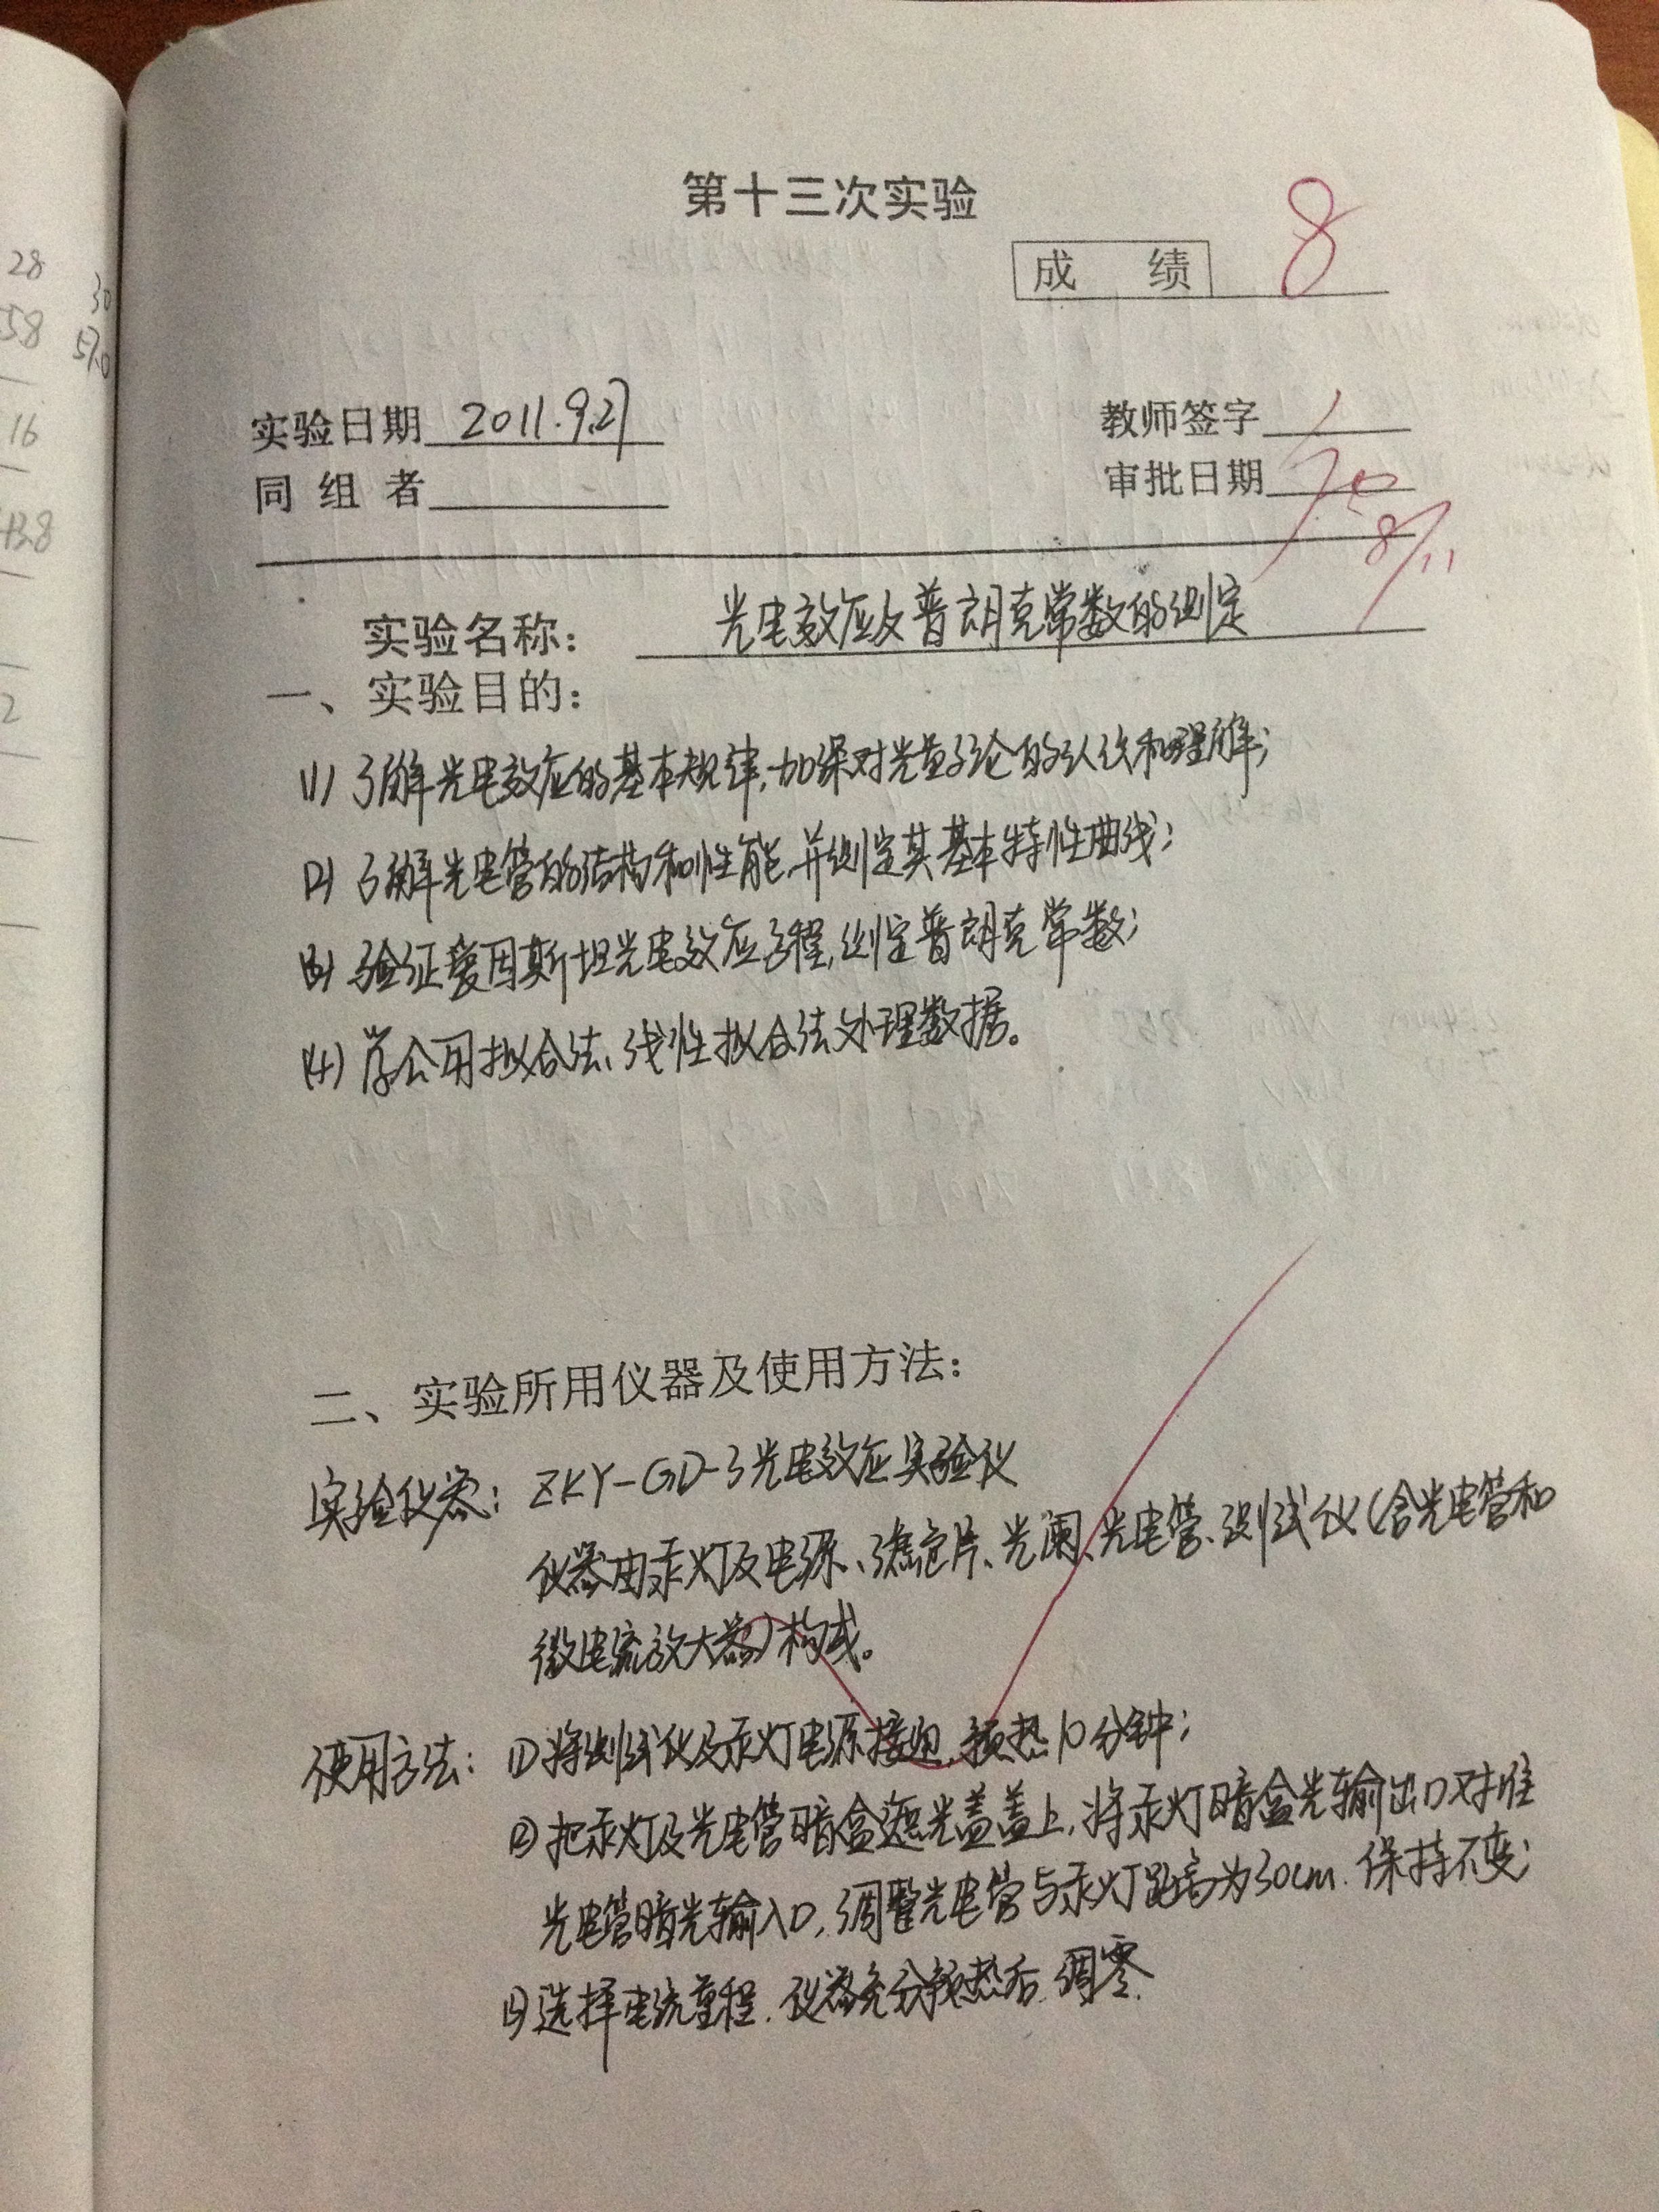 第十三次实验
成 绩 8
实验日期 2011.9.27 教师签字
同 组 者 审批日期
8/11
实验名称: 光电效应及普朗克常数的测定
一、实验目的:
(1) 了解光电效应的基本规律,加深对光量子论的认识和理解;
(2) 了解光电管的结构和性能,并测定其基本特性曲线;
(3) 验证爱因斯坦光电效应方程,测定普朗克常数;
(4) 学会用拟合法、线性拟合法处理数据。
二、实验所用仪器及使用方法:
实验仪器: ZKY-GD-3光电效应实验仪
仪器由汞灯及电源、滤色片、光阑、光电管、测试仪(含光电管和
微电流放大器)构成。
使用方法: ①将测试仪及汞灯电源接通,预热10分钟;
②把汞灯及光电管暗盒遮光盖盖上,将汞灯暗盒光输出口对准
光电管暗光输入口,调整光电管与汞灯距离为30cm.保持不变;
③选择电流量程.仪器充分预热后,调零.
28
30
58
57.0
16
2